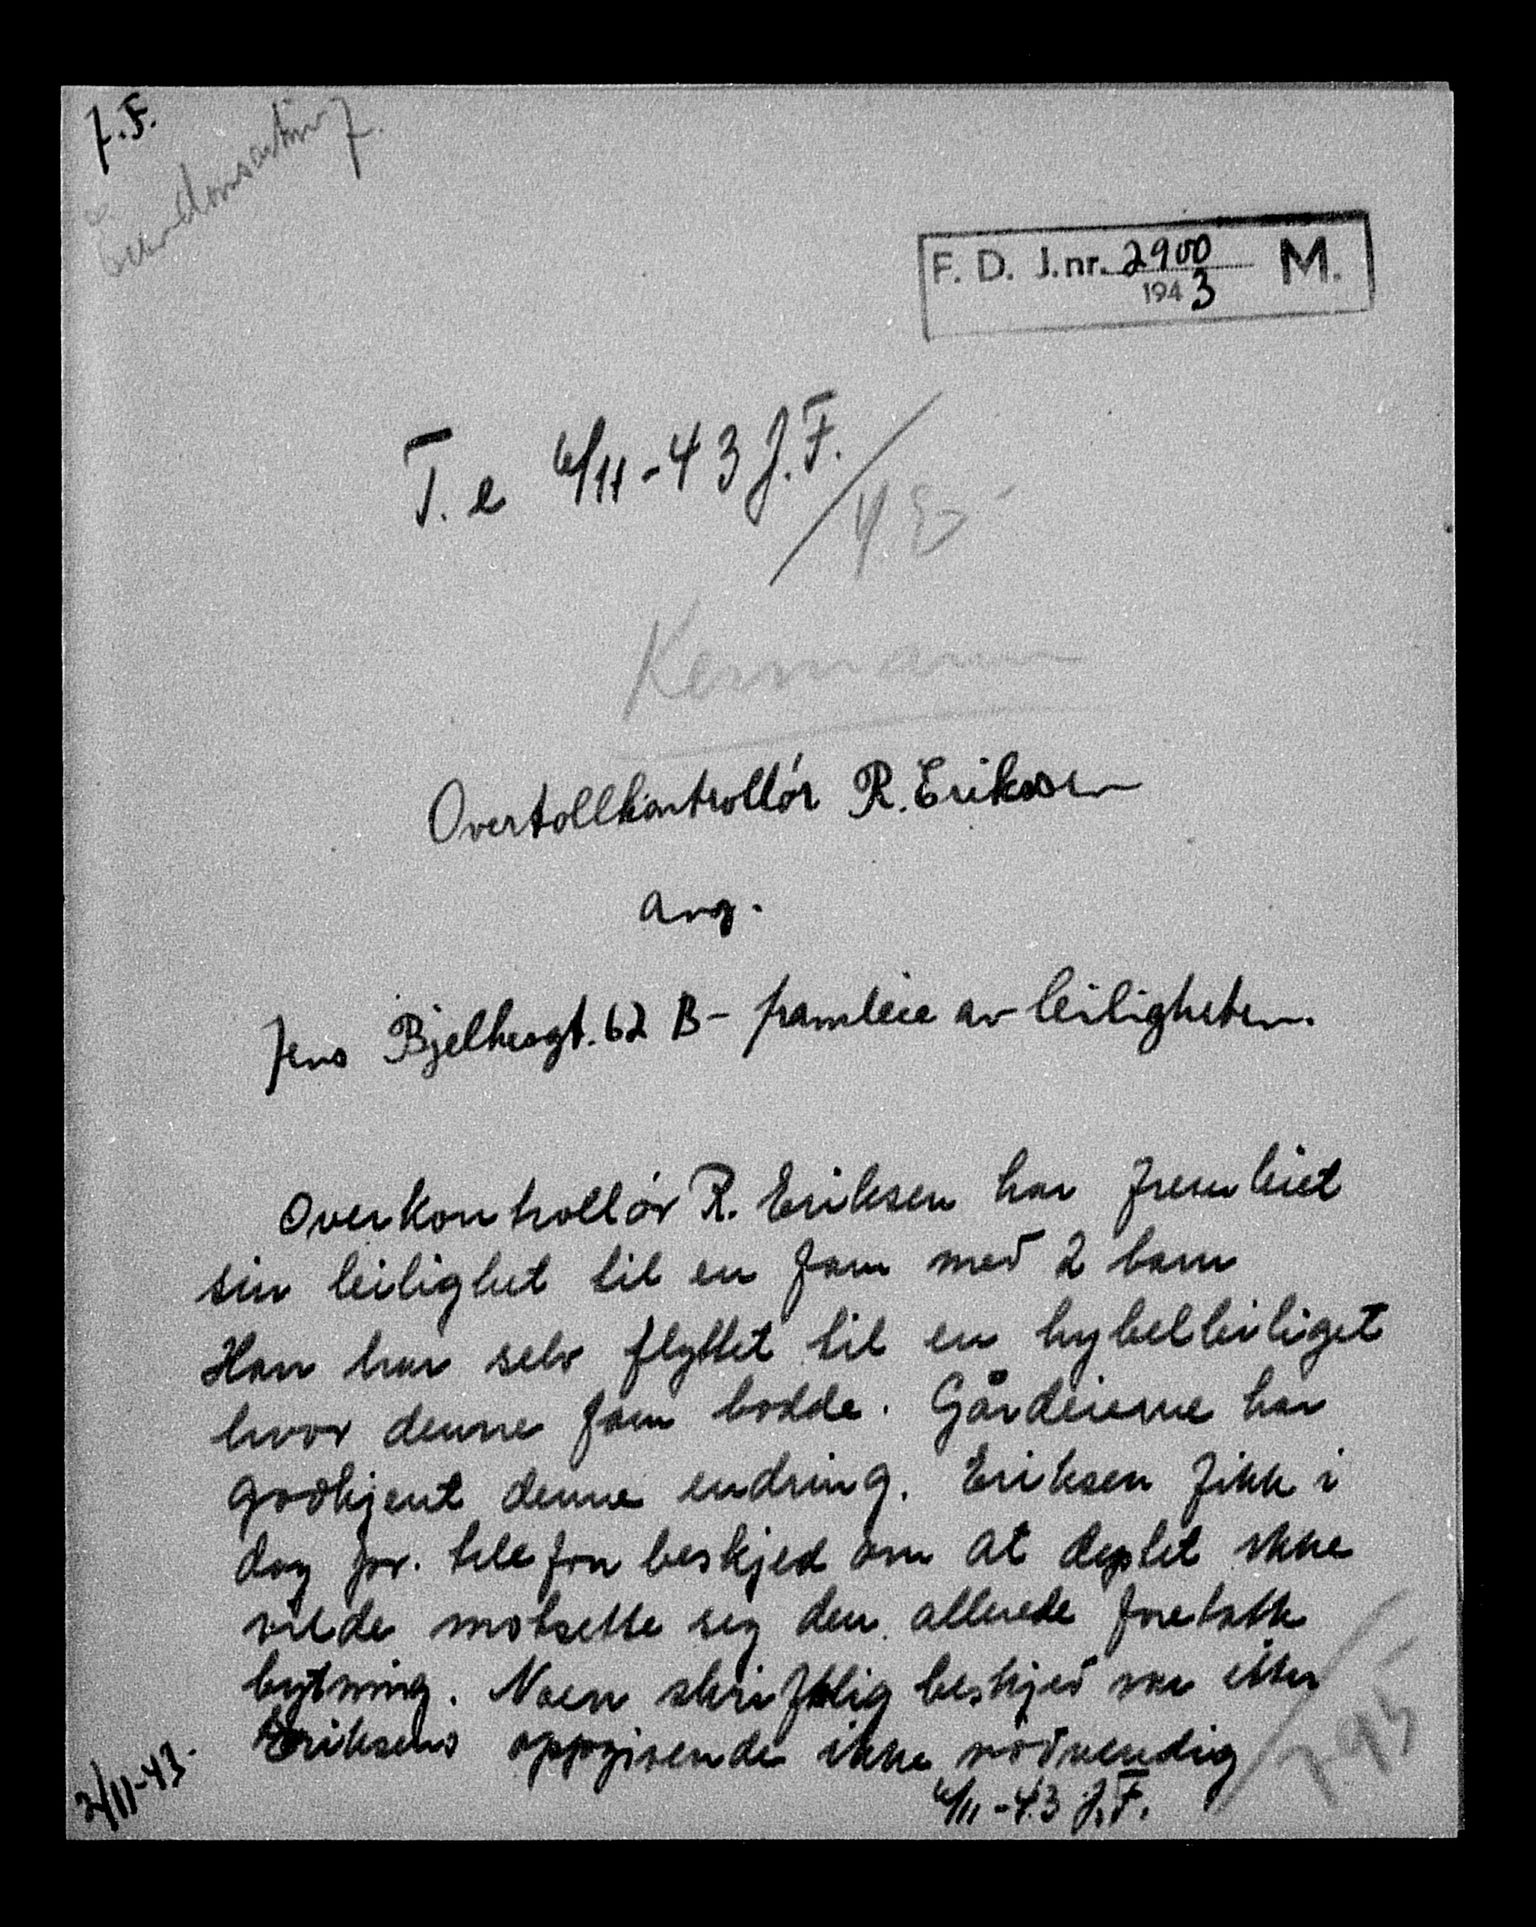 J.F.
F. D. J.nr. 2900 M.
1943
T. e 6/11-43 J.F.
Kermann
Overtollkontrollør R. Eriksen
ang.
Jens Bjelkesgt. 62 B – framleie av leiligheten.
Overkontrollør R. Eriksen har fremleiet
sin leilighet til en fam med 2 barn
Han har selv flyttet til en hybelleiliget
hvor denne fam bodde. Gårdeierne har
godkjent denne endring. Eriksen fikk i
dag pr. telefon beskjed om at deptet ikke
vilde motsette seg den allerede foretatte
bytning. Noen skriftlig beskjed var etter
Eriksens oppgivende ikke nødvendig
6/11-43 J.F.
2/11-43.